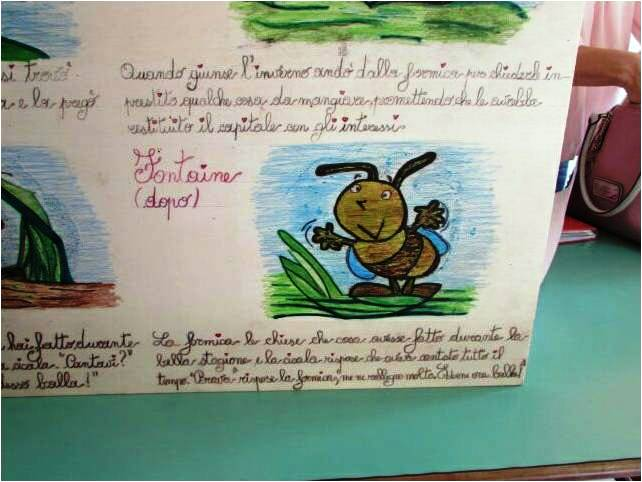 si trovò
a e la pregò
Quando giunse l'inverno andò dalla formica per chiederle in-
prestito qualche cosa da mangiare, promettendo che le avrebbe
restituito il capitale con gli interessi.
Fontaine
(dopo)
hai fatto durante
a cicala. "Cantavi?"
esso balla!"
La formica le chiese che cosa avesse fatto durante la
bella stagione e la cicala rispose che aveva cantato tutto il
tempo. "Brava" rispose la formica, "me ne rallegro molto. Ebbene ora balla!"